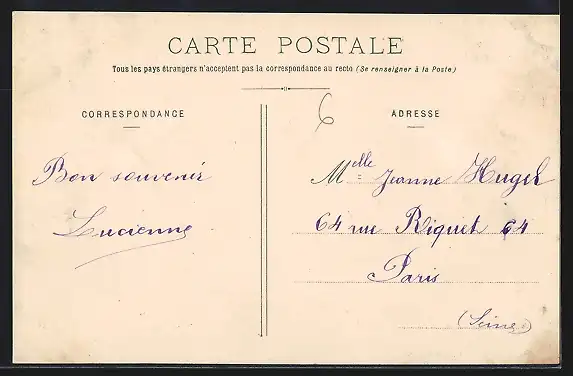 CARTE POSTALE
Tous les pays étrangers n'acceptent pas la correspondance au recto (Se renseigner à la Poste)
CORRESPONDANCE
6
ADRESSE
Bon souvenir
Lucienne
Melle Jeanne Hugel
64 rue Riquet 64
Paris
(Seine)